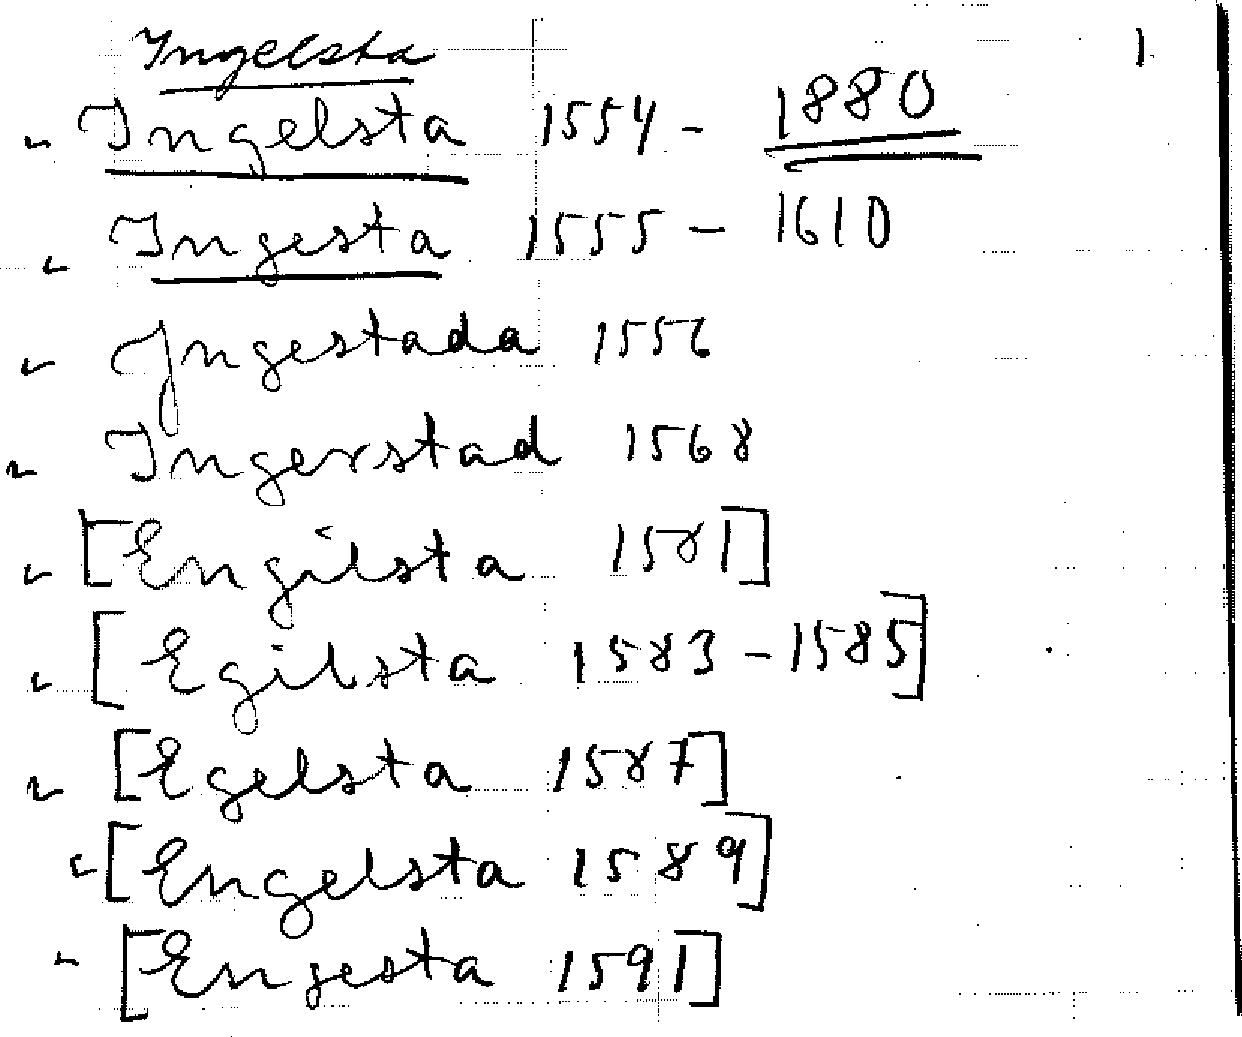 Ingelsta 1
" Ingelsta 1554 - 1880
" Ingesta 1555 - 1610
" Ingestada 1556
" Ingerstad 1568
" [Engilsta 1581]
" [Egilsta 1583 - 1585]
" [Egelsta 1587]
" [Engelsta 1589]
" [Engesta 1591]